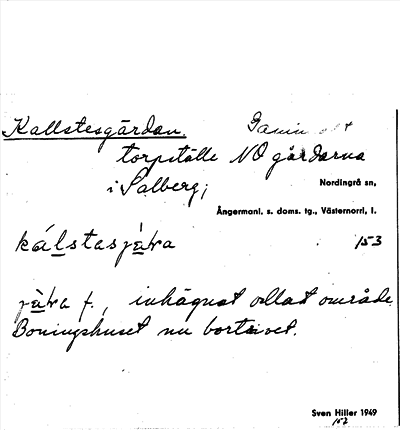 Kallstesgärdan. Gammalt
torpställe NO gårdarna
i Salberg;
Nordingrå sn,
Ångermanl. s. doms. tg., Västernorrl. l.
153
inhägnat odlat område.
Boningshuset nu bortrivet.
Sven Hiller 1949
152